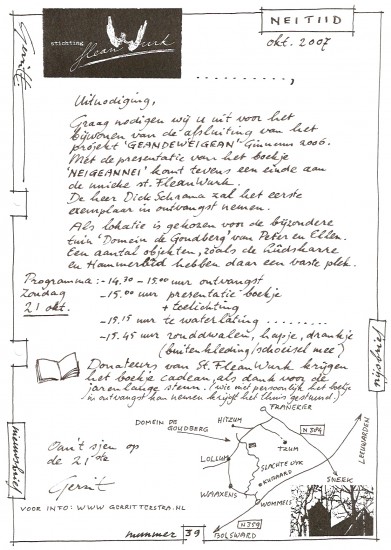 stichting
FleanWurk
NEITIID
okt. 2007
Gerrit.
..........,
Uitnodiging,
Graag nodigen wij u uit voor het
bijwonen van de afsluiting van het
projekt 'GEANDEWEIGEAN' Ginnum 2006.
Mét de presentatie van het boekje
'NEIGEANNEI' komt tevens een einde aan
de unieke st. FleanWurk.
De heer Dick Schrama zal het eerste
exemplaar in ontvangst nemen.
Als lokatie is gekozen voor de bijzondere
tuin 'Domein de Gondberg' van Peter en Ellen.
Een aantal objekten, zoals de
en hebben daar een vaste plek.
Programma: - 14.30 - 15.00 uur ontvangst
Zondag - 15.00 uur presentatie boekje
21 okt. + toelichting
- 15.15 uur te waterlating ........
- 15.45 uur ronddwalen, hapje, drankje
(buitenkleding/schoeisel mee?)
Donateurs van St. FleanWurk krijgen
het boekje cadeau, als dank voor de
jarenlange steun. (wie niet persoonlijk het boekje
in ontvangst kan nemen krijgt het thuis gestuurd.)
FRANEKER
HITZUM
N 384
DOMEIN DE
GOUDBERG
TZUM
LEEUWARDEN
LOLLUM
SLACHTEDYK
KUBAARD
SNEEK
WAAXENS
WOMMELS
N 359
BOLSWARD
Oan't sjen op
de 21ste
Gerrit
VOOR INFO: WWW.GERRITTERSTRA.NL
nijsbrief
nieuwsbrief
nummer 39